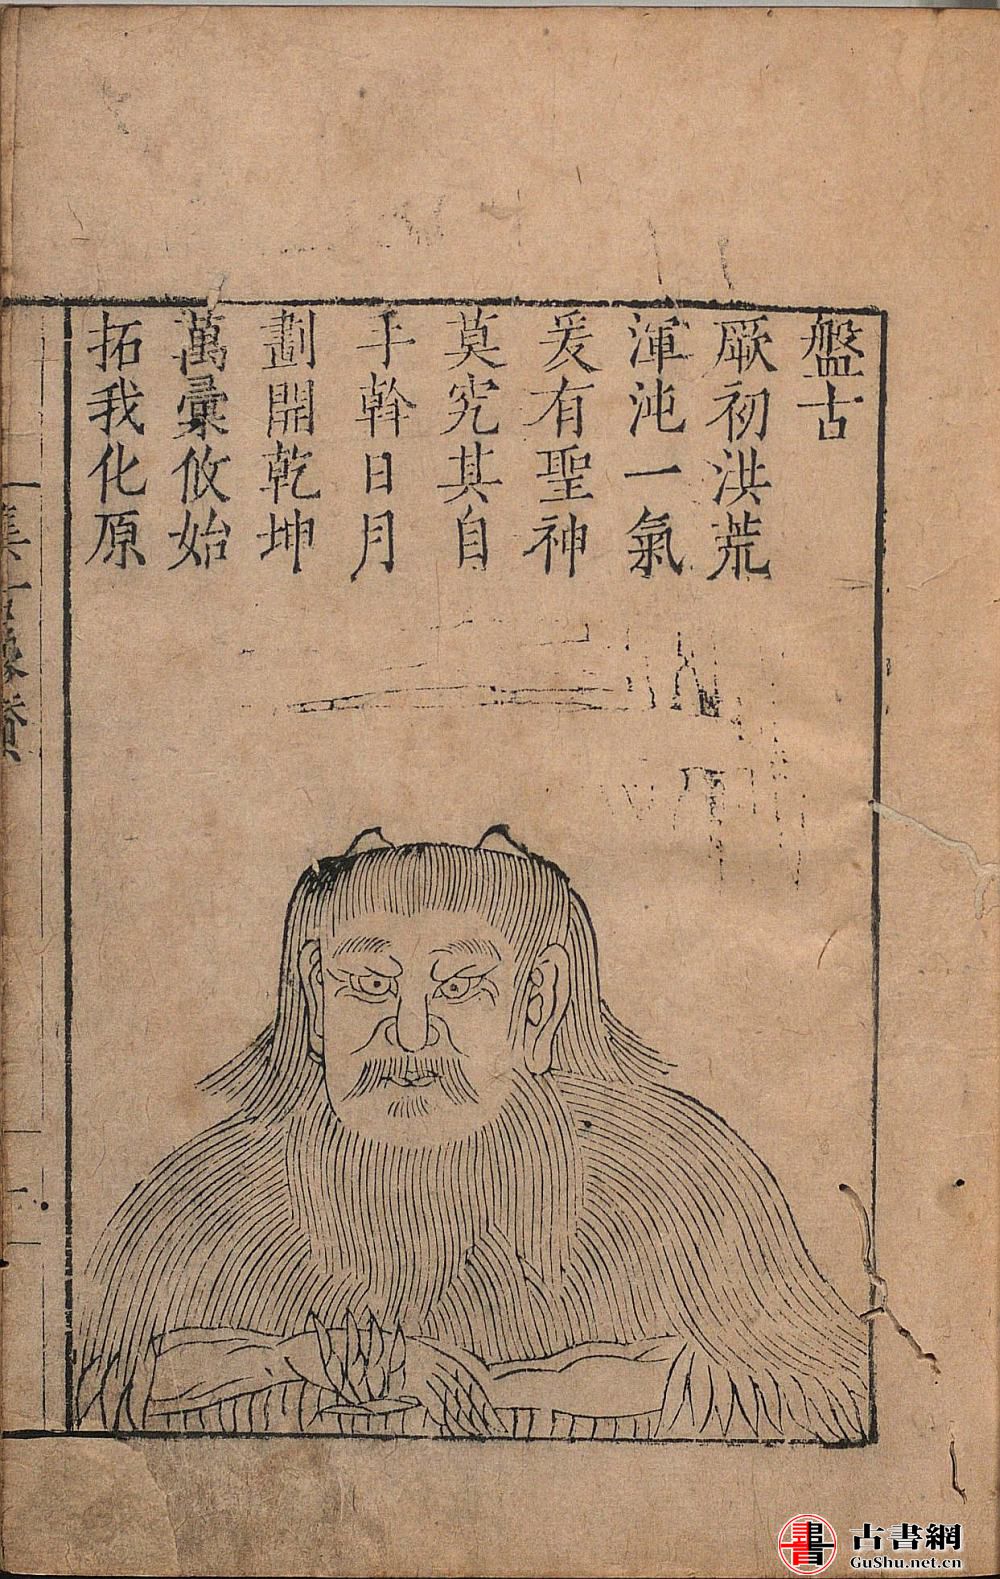 盤古
厥初洪荒
渾沌一氣
爰有聖神
莫究其自
手斡日月
劃開乾坤
萬彙攸始
拓我化原
古書網
GuShu.net.cn